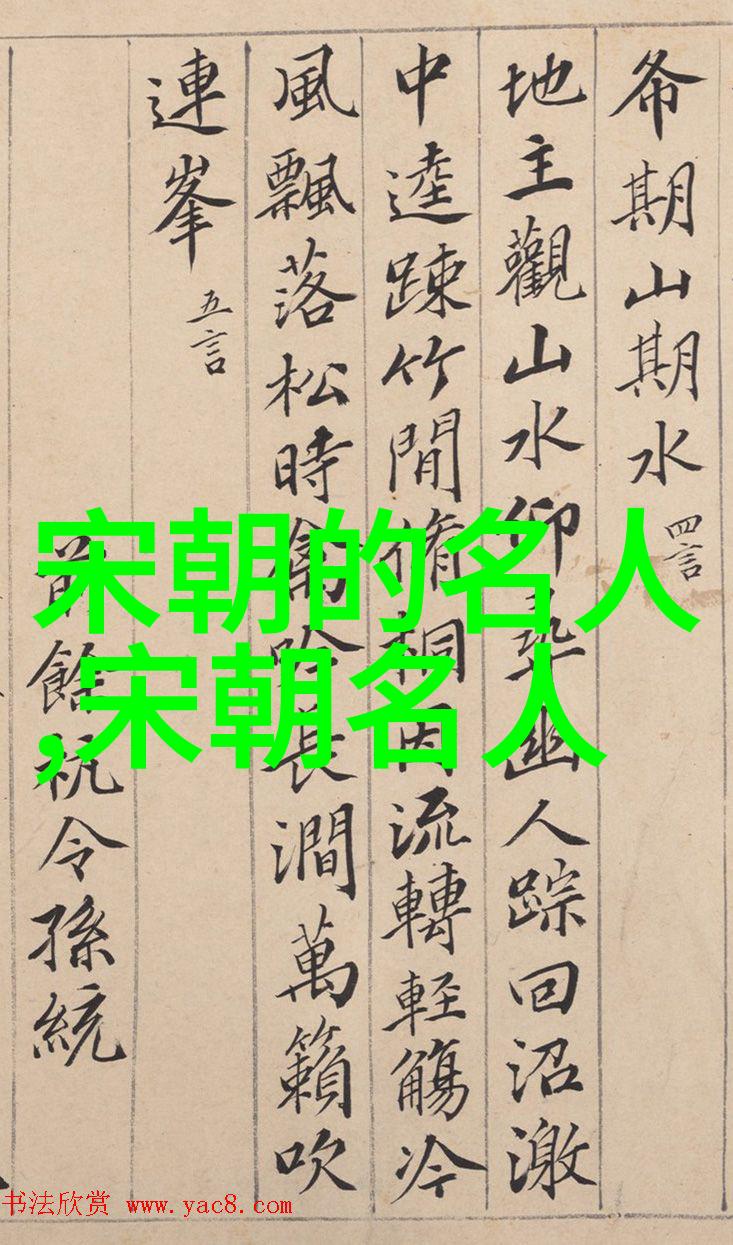 希期山期水 四言
地主觀山水仰尋幽人踪回沼激
中逵踈竹間脩桐因流轉輕觴冷
風飄落松時禽吟長澗萬籟吹
連峯 五言
前餘杭令孫統
宋朝的名人
,宋朝名人
书法欣赏 www.yac8.com